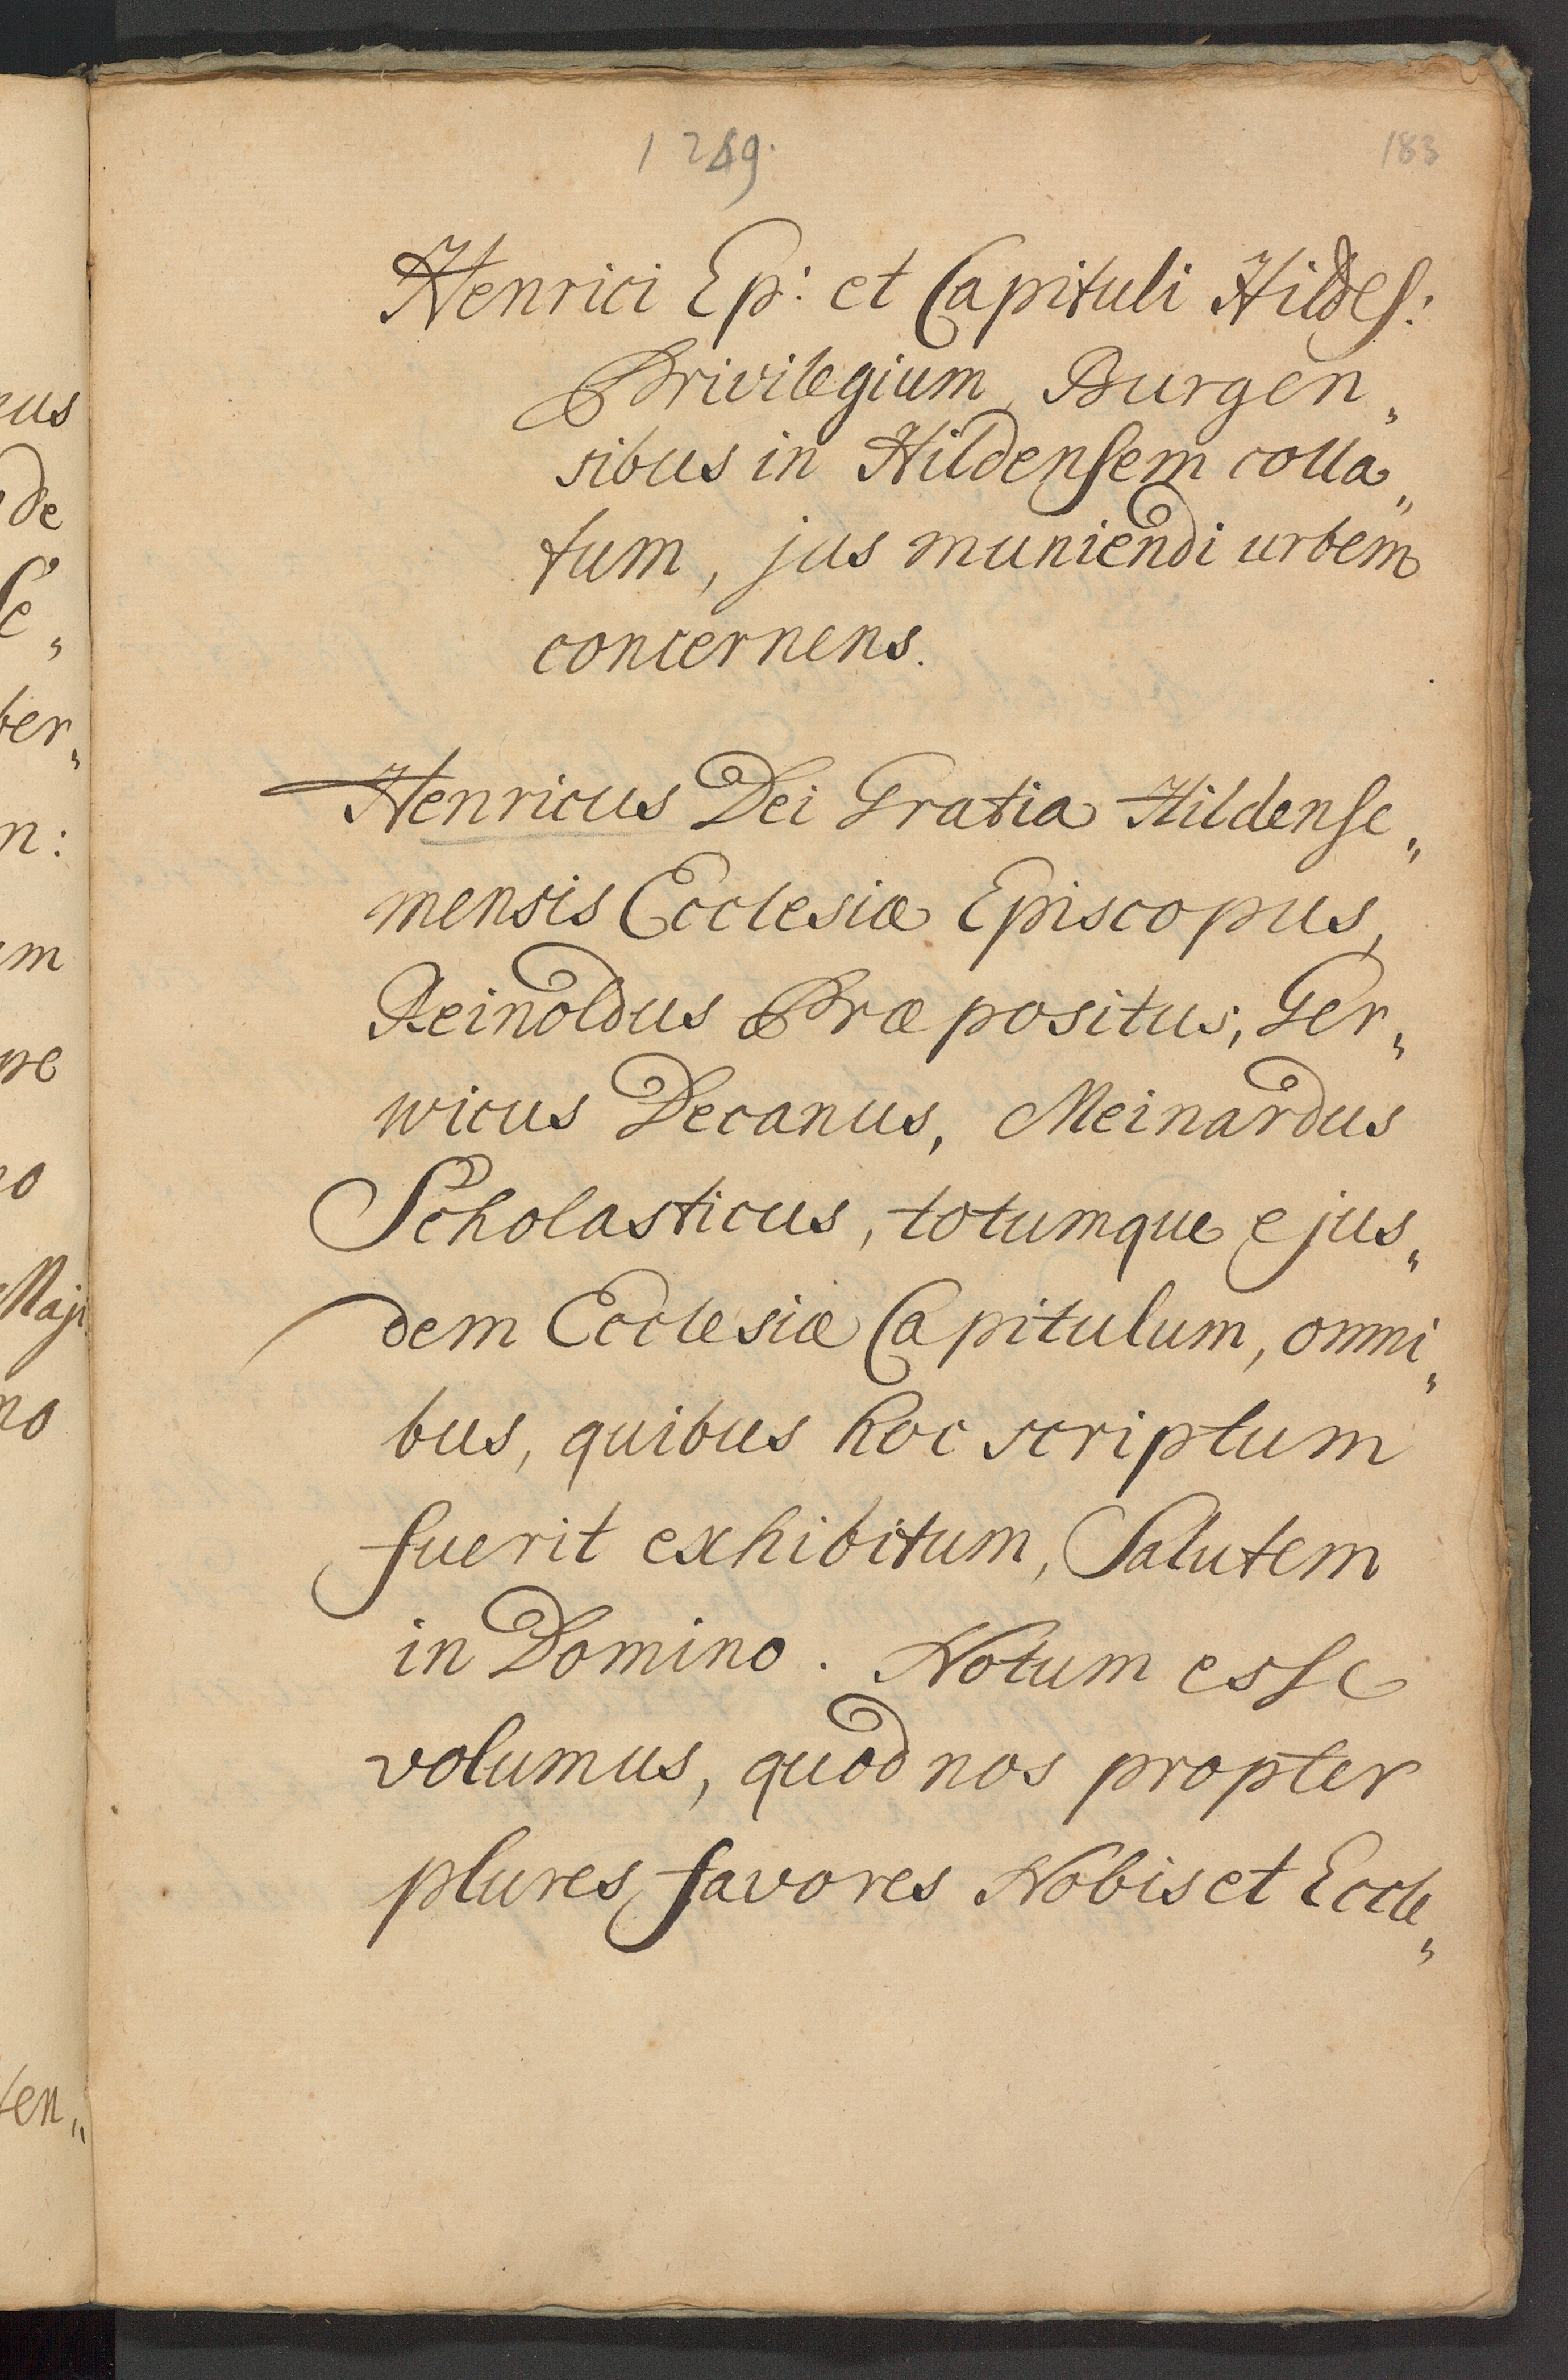 1249.
183
Henrici Ep: et Capituli Hildes:
Privilegium Burgen„
sibus in Hildensem colla„
tum, jus muniendi urbem
concernens.
Henricus Dei Gratia Hildense„
mensis Ecclesiæ Episcopus,
Reinoldus Præpositus, Ger„
wicus Decanus, Meinardus
Scholasticus, totumque ejus„
dem Ecclesiæ Capitulum, omni„
bus, quibus hoc scriptum
fuerit exhibitum, Salutem
in Domino. Notum esse
volumus, quod nos propter
plures favores Nobis et Eccle„